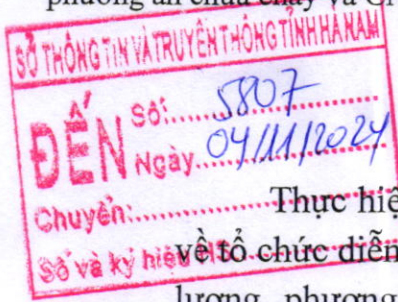 phương án chữa cháy và C
SỞ THÔNG TIN VÀ TRUYỀN THÔNG TỈNH HÀ NAM
ĐẾN
Số: 5807
Ngày 04/11/2024
Chuyển:
Thực hiệ
Số và ký hiệu
về tổ chức diễn
lượng, phương